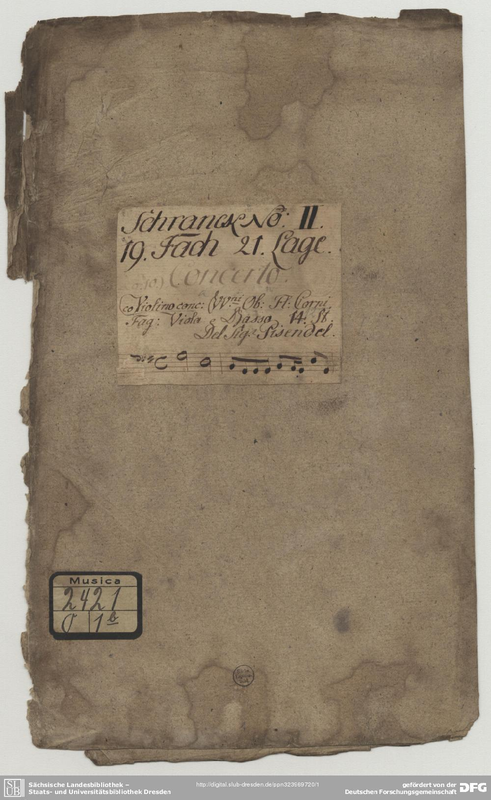 Schranck No: II.
19. Fach 21. Lage.
Concerto.
co Violino conc: VVni Ob: Fl: Corni
Fag: Viola e Basso. 14. St.
Del Sigr Pisendel.
Musica
2421
O 1b
Sächsische Landesbibliothek –
Staats- und Universitätsbibliothek Dresden
http://digital.slub-dresden.de/ppn323589720/1
gefördert von der
Deutschen Forschungsgemeinschaft
DFG